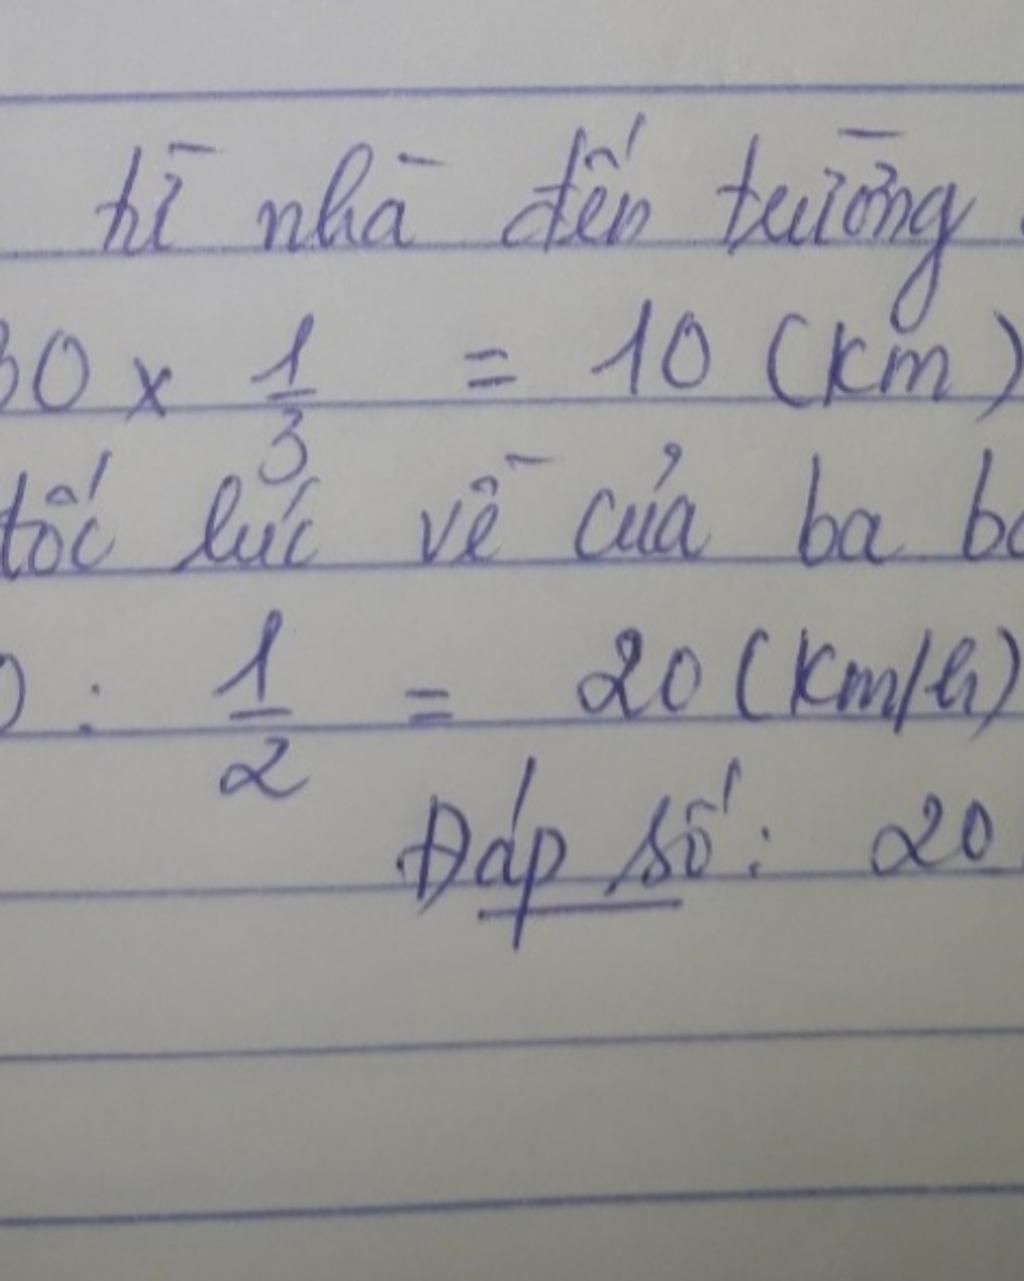 từ nhà đến trường
30 x 1/3 = 10 (km)
tốc lúc về của ba
: 1/2 = 20 (km/h)
Đáp số: 20